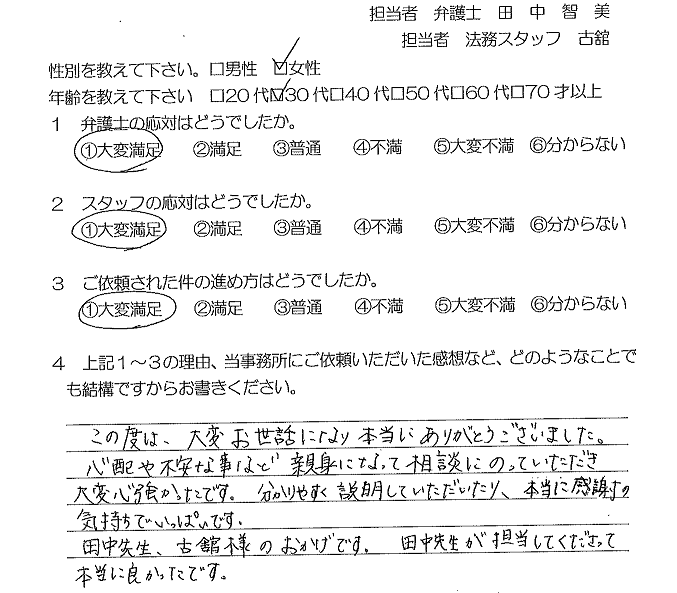 担当者 弁護士 田 中 智 美
担当者 法務スタッフ 古舘
性別を教えて下さい。□男性 ☑女性
年齢を教えて下さい □20代☑30代□40代□50代□60代□70才以上
1 弁護士の応対はどうでしたか。
①大変満足 ②満足 ③普通 ④不満 ⑤大変不満 ⑥分からない
2 スタッフの応対はどうでしたか。
①大変満足 ②満足 ③普通 ④不満 ⑤大変不満 ⑥分からない
3 ご依頼された件の進め方はどうでしたか。
①大変満足 ②満足 ③普通 ④不満 ⑤大変不満 ⑥分からない
4 上記1~3の理由、当事務所にご依頼いただいた感想など、どのようなことで
も結構ですからお書きください。
この度は、大変お世話になり本当にありがとうございました。
心配や不安な事など親身になって相談にのっていただき
大変心強かったです。分かりやすく説明していただいたり、本当に感謝の
気持ちでいっぱいです。
田中先生、古舘様のおかげです。田中先生が担当してくださって
本当に良かったです。